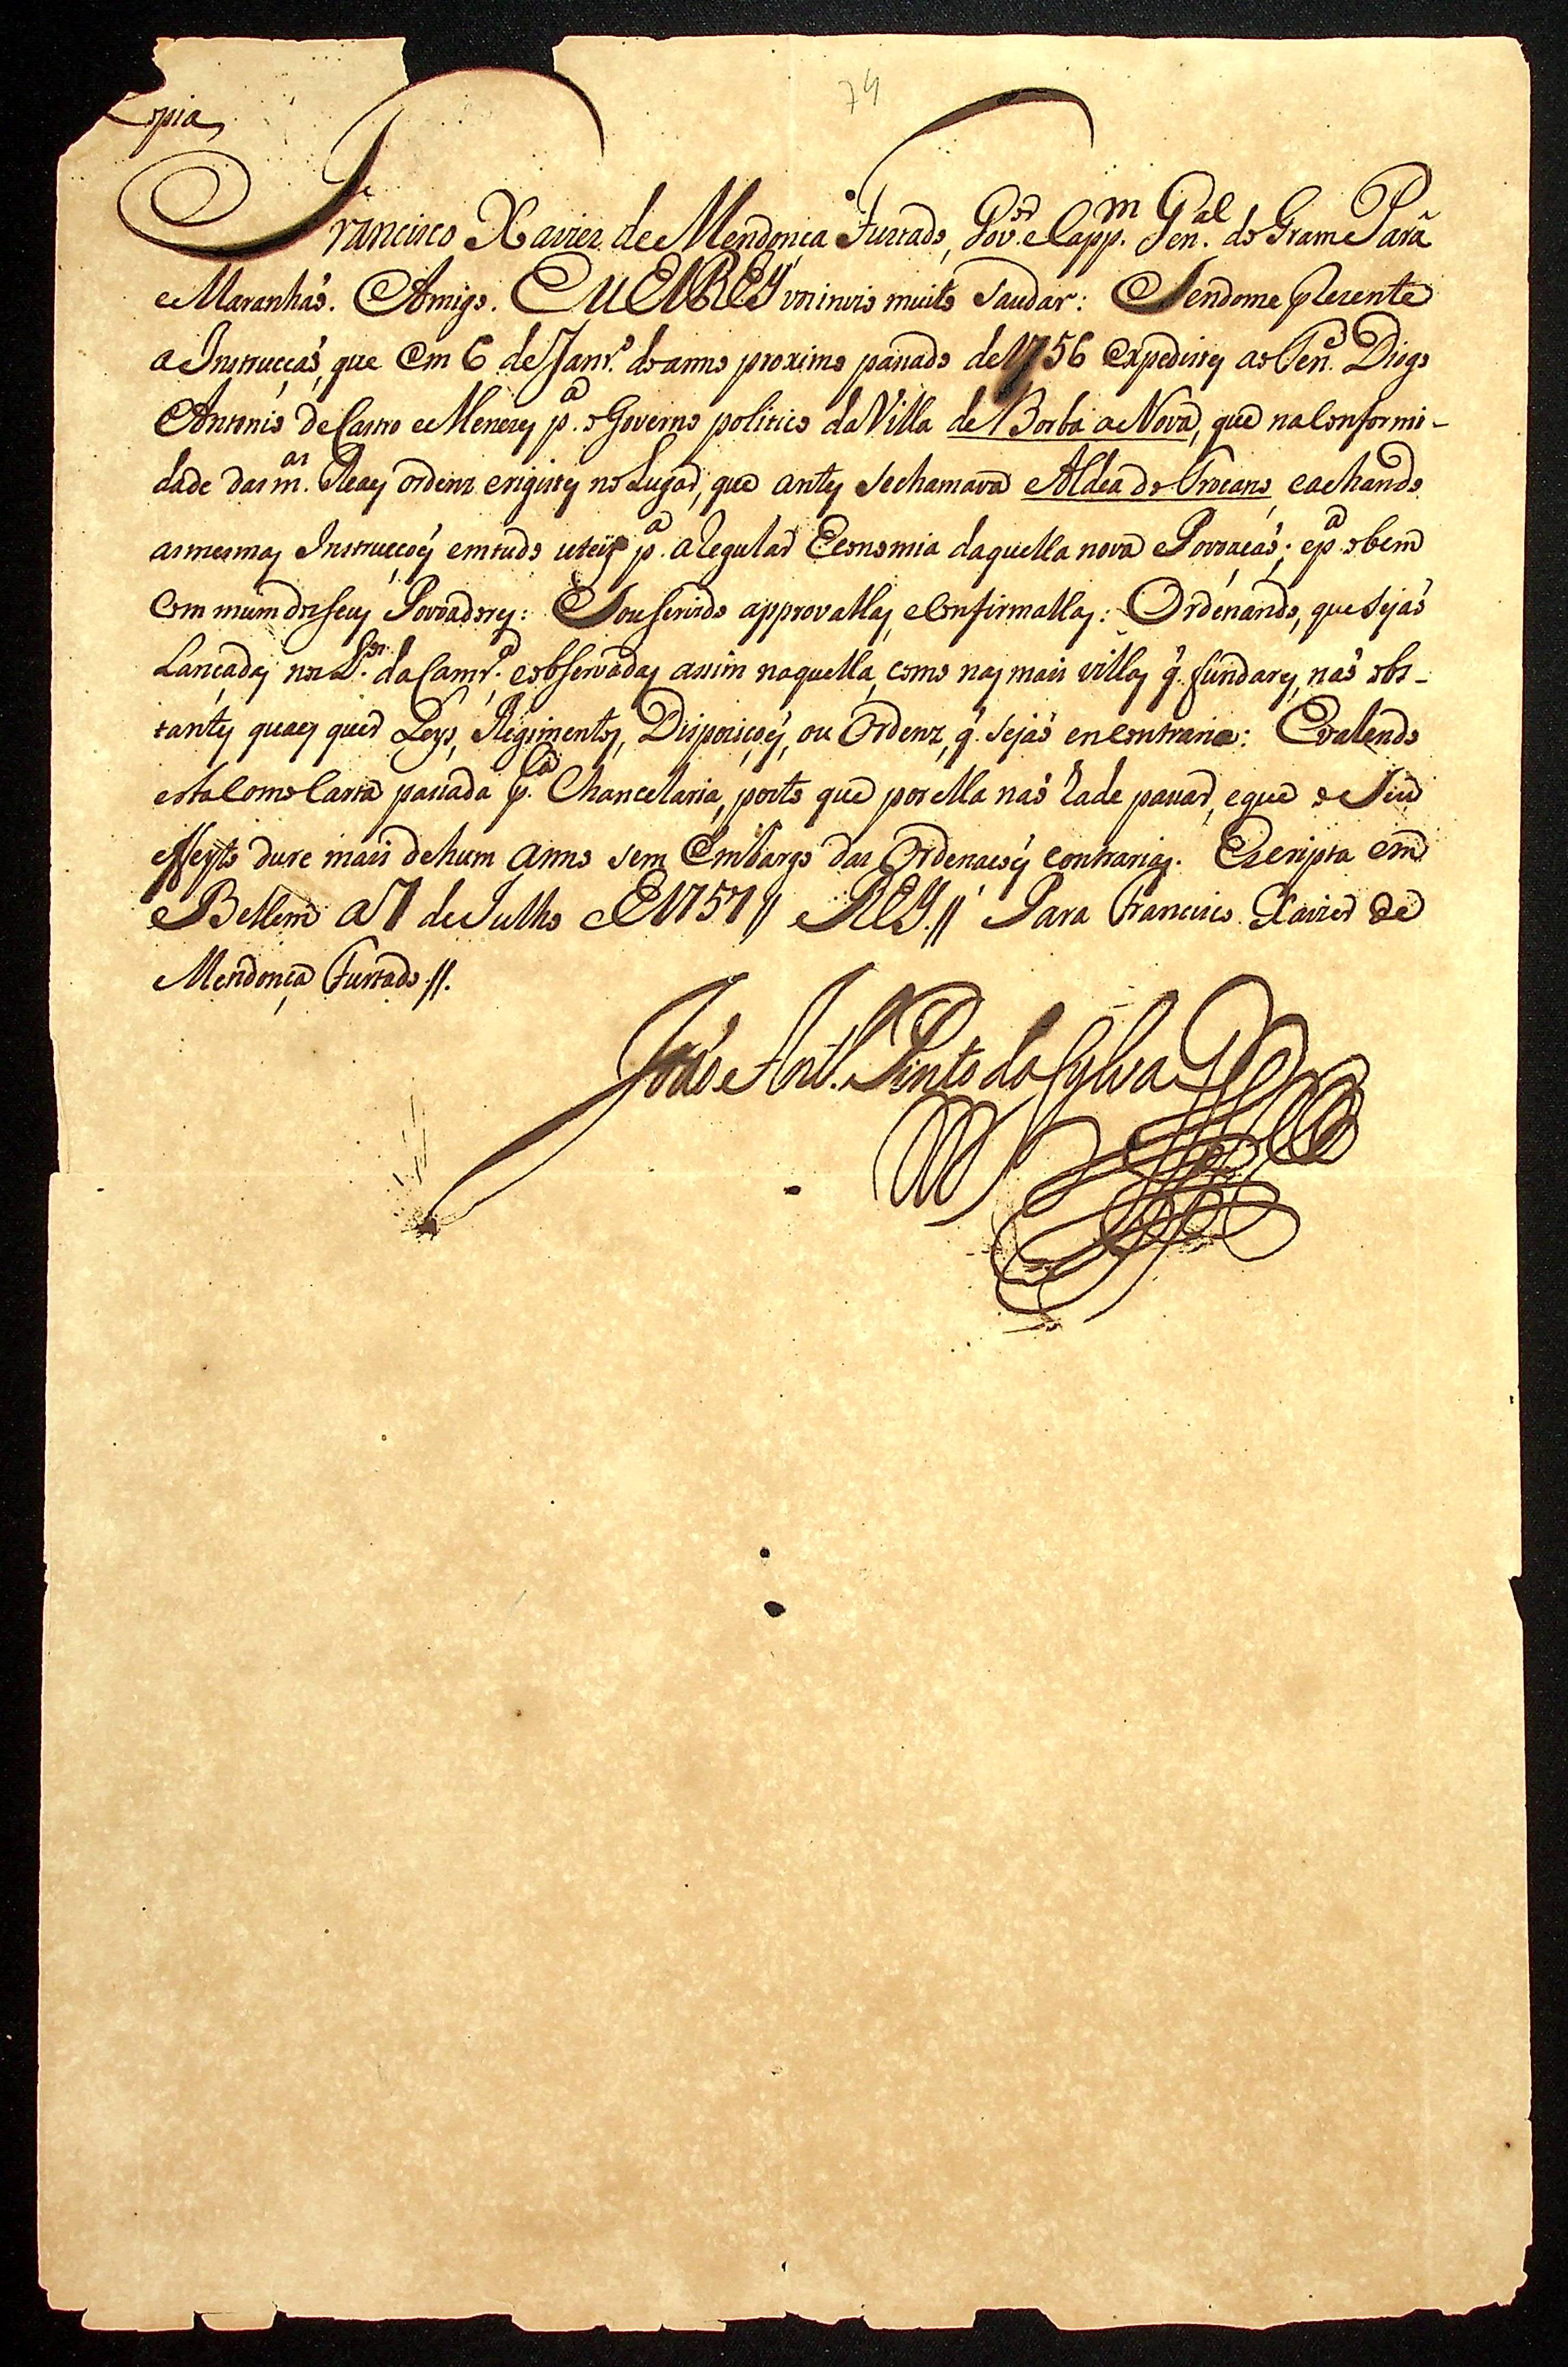 74
Copia
Francisco Xavier de Mendonça Furtado, Gov.or e Capp.m Gen.al do Gram Pará
e Maranhaõ. Amigo. Eu ElREY vos invio muito saudar: Sendome prezente
a Instrucçaõ, que em 6 de Janr.o do anno proximo passado de 1756 expedistes ao Ten.e Diogo
Antonio de Castro e Menezes p.a o Governo politico da Villa de Borba a Nova, que na Conformi-
dade das m.as Reaes ordens erigistes no Lugar, que antes se chamava Aldea do Trocano, e achando
as mesmas Instrucçoẽs em tudo uteis p.a a regular Economia daquella nova Povoaçaõ; e p.a o bem
Commum dos seus Povoadores: Sou servido approvallas, e Confirmallas: Ordenando, que sejaõ
Lançadas nos L.os da Camr.a e observadas assim naquella, como nas mais villas q̃ fundares, naõ obs-
tantes quaes quer Leys, Regimentos, Dispoziçoẽs, ou Ordens, q̃ sejaõ en contrario: E valendo
esta Como Carta passada p.la Chancelaria, posto que por ella naõ hade passar, e que o seu
effeyto dure mais de hum anno sem embargo das Ordenaçoẽs contrarias. Escripta em
Bellem a 7 de Julho de 1757 // REY // Para Francisco Xavier de
Mendonça Furtado //.
Joaõ Ant.o Pinto da Sylva